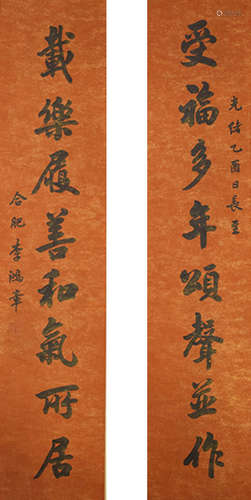 受福多年頌聲並作
光緒乙酉日長至
載樂履善和氣所居
合肥李鴻章